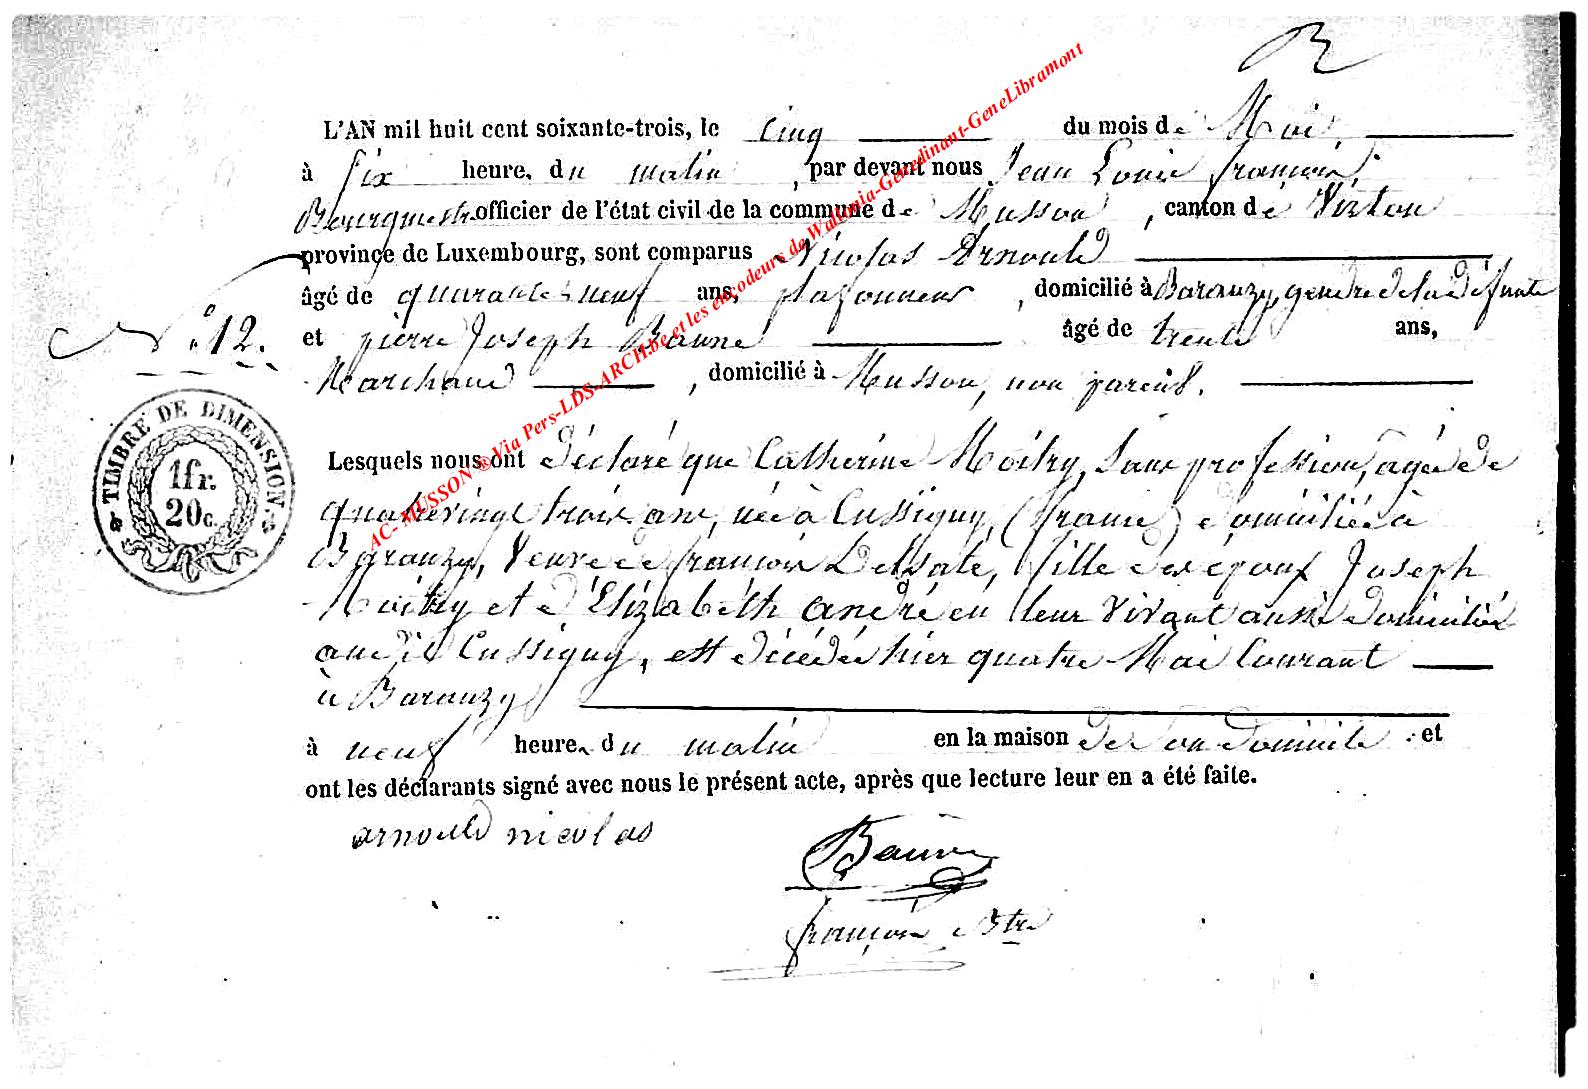 L'AN mil huit cent soixante-trois, le cinq du mois de Mai,
à six heures du matin, par devant nous Jean Louis françois,
Bourgmestre officier de l'état civil de la commune de Musson, canton de Virton
province de Luxembourg, sont comparus Nicolas Arnould
âgé de quarante neuf ans, plafonneur, domicilié à Baranzy, gendre de la défunte
N° 12.
et pierre Joseph Baune âgé de trente ans,
Marchand, domicilié à Musson, non parent.
TIMBRE DE DIMENSION.
1fr.
20c.
Lesquels nous ont déclaré que Catherine Moitry, sans profession, agée de
quatrevingt trois ans, née à Cussigny, (france) domiciliée à
Baranzy, Veuve de françois Delsate, fille des époux Joseph
Moitry et d'Elizabeth andré en leur vivant aussi domiciliés
audit Cussigny, est décédée hier quatre Mai Courant
à Baranzy
à neuf heures du matin en la maison de son domicile et
ont les déclarants signé avec nous le présent acte, après que lecture leur en a été faite.
arnould nicolas
Baune
françois Btre
AC- MUSSON ® Via Pers-LDS-ARCH.be et les encodeurs de Wallonia-Genedinant-GeneLibramont